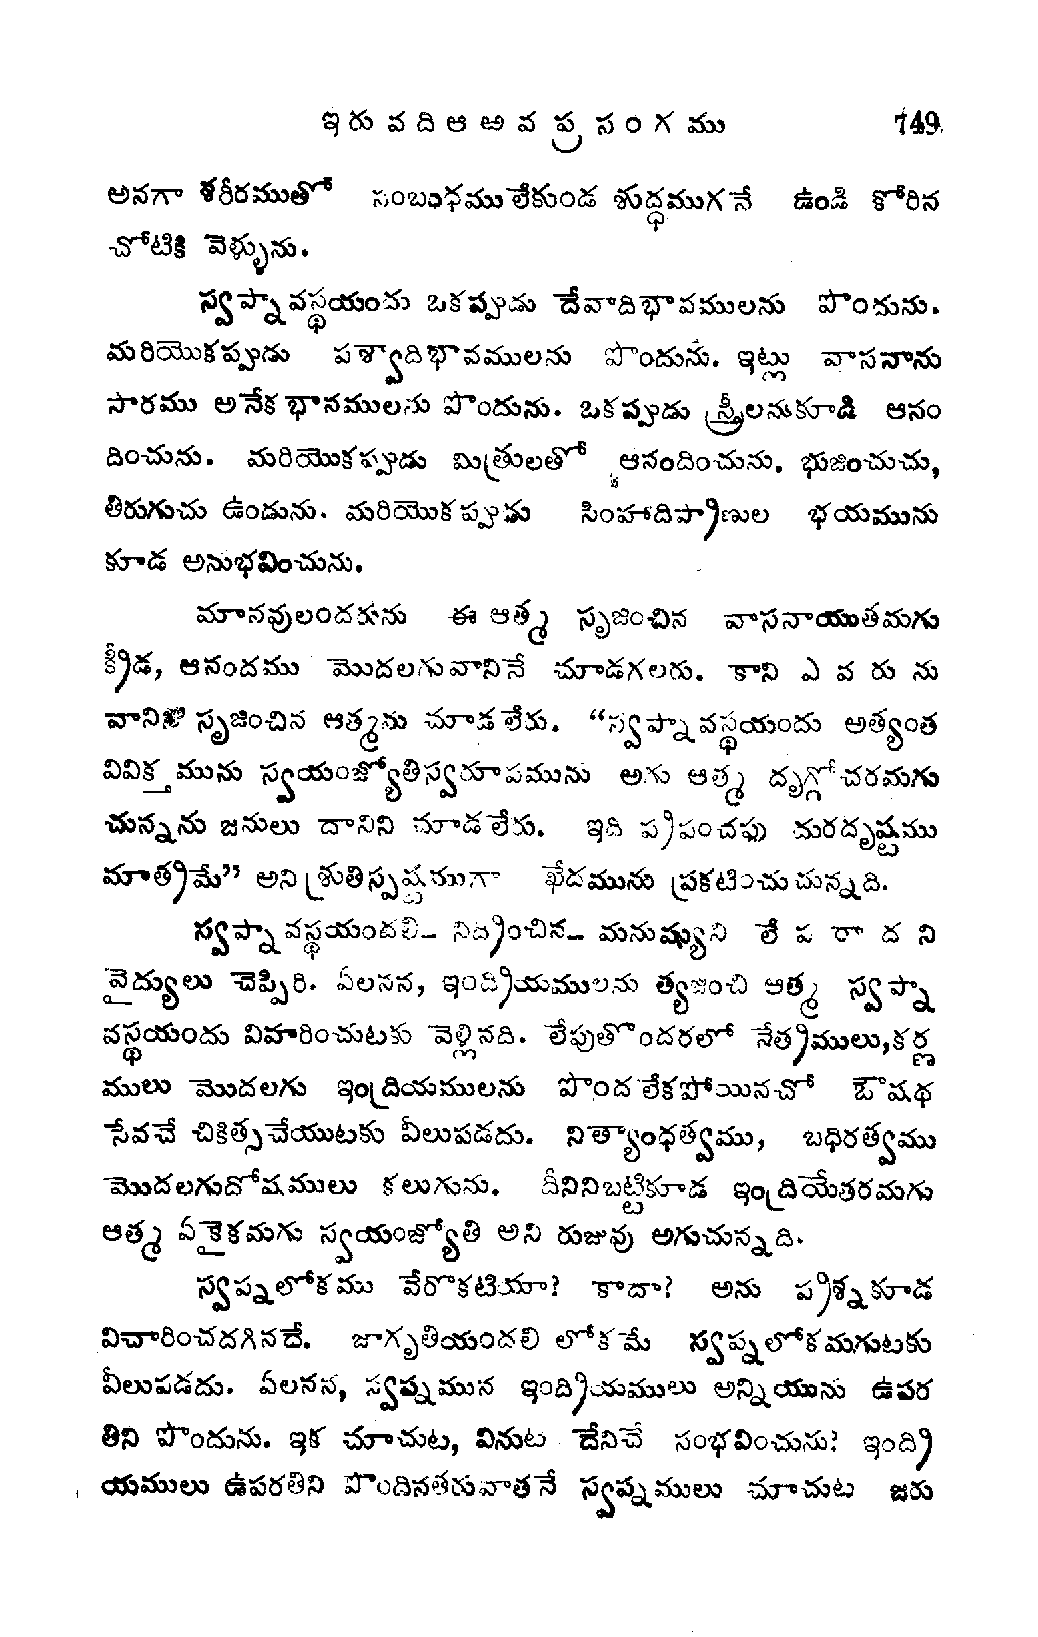 ఇరువదిఆఱవ ప్రసంగము 749
అనగా శరీరముతో సంబంధములేకుండ శుద్ధముగనే ఉండి కోరిన
చోటికి వెళ్ళును.
స్వప్నావస్థయందు ఒకప్పుడు దేవాదిభావములను పొందును.
మరియొకప్పుడు పశ్వాదిభావములను పొందును. ఇట్లు వాసనాను
సారము అనేక భావములను పొందును. ఒకప్పుడు స్త్రీలనుకూడి ఆనం
దించును. మరియొకప్పుడు మిత్రులతో ఆనందించును, భుజించుచు,
తిరుగుచు ఉండును. మరియొకప్పుడు సింహాదిప్రాణుల భయమును
కూడ అనుభవించును.
మానవులందరును ఈ ఆత్మ సృజించిన వాసనాయుతమగు
క్రీడ, ఆనందము మొదలగువానినే చూడగలరు. కాని ఎవరును
వానిని సృజించిన ఆత్మను చూడలేరు. “స్వప్నావస్థయందు అత్యంత
వివిక్తమును స్వయంజ్యోతిస్వరూపమును అగు ఆత్మ దృగ్గోచరమగు
చున్నను జనులు దానిని చూడలేరు. ఇది ప్రపంచపు దురదృష్టము
మాత్రమే” అని శ్రుతిస్పష్టముగా ఖేదమును ప్రకటించుచున్నది.
స్వప్నావస్థయందలి- నిద్రించిన- మనుష్యుని లేపరాదని
వైద్యులు చెప్పిరి. ఏలనన, ఇంద్రియములను త్యజించి ఆత్మ స్వప్నా
వస్థయందు విహరించుటకు వెళ్లినది. లేపుతొందరలో నేత్రములు,కర్ణ
ములు మొదలగు ఇంద్రియములను పొందలేకపోయినచో ఔషధ
సేవచే చికిత్సచేయుటకు వీలుపడదు. నిత్యాంధత్వము, బధిరత్వము
మొదలగుదోషములు కలుగును. దీనినిబట్టికూడ ఇంద్రియేతరమగు
ఆత్మ ఏకైకమగు స్వయంజ్యోతి అని రుజువు అగుచున్నది.
స్వప్నలోకము వేరొకటియా? కాదా? అను ప్రశ్నకూడ
విచారించదగినదే. జాగృతియందలి లోకమే స్వప్నలోకమగుటకు
వీలుపడదు. ఏలనన, స్వప్నమున ఇంద్రియములు అన్నియును ఉపర
తిని పొందును. ఇక చూచుట, వినుట దేనిచే సంభవించును? ఇంద్రి
యములు ఉపరతిని పొందినతరువాతనే స్వప్నములు చూచుట జరు